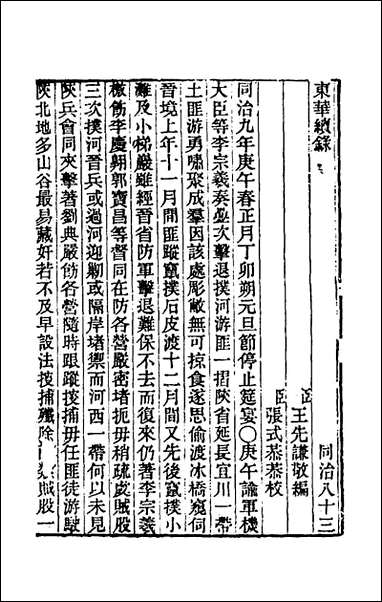 東華續錄 同治八十三
臣王先謙敬編
臣張式恭恭校
同治九年庚午春正月丁卯朔元旦節停止筵宴〇庚午諭軍機
大臣等李宗羲奏疊次擊退撲河游匪一摺陝省延長宜川一帶
土匪游勇嘯聚成羣因該處彫敝無可掠食遂思偷渡冰橋窺伺
晉境上年十一月間匪蹤竄撲石皮渡十二月間又先後竄撲小
灘及小梯嚴雖經晉省防軍擊退難保不去而復來仍著李宗羲
檄飭李慶翺郭寶昌等督同在防各營嚴密堵扼毋稍疏虞賊股
三次撲河晉兵或過河迎勦或隔岸堵禦而河西一帶何以未見
陝兵會同夾擊著劉典嚴飭各營隨時跟蹤搜捕毋任匪徒游駛
陝北地多山谷最易藏奸若不及早設法搜捕殲除 賊股一